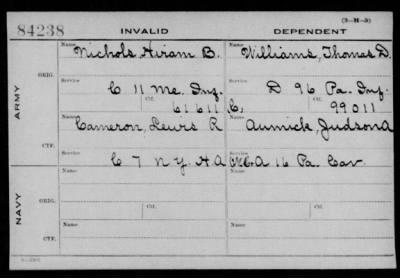 (3-M-3)
84238 INVALID DEPENDENT
Name Nichols, Hiram B. Name Williams, Thomas D.
ARMY
ORIG.
Service C 11 Me. Inf. Service D 96 Pa. Inf.
Ctf. 61611 Ctf. 99011
Name Cameron, Lewis R Name Aumick, Judson A
CTF.
Service C 7 N.Y. H.A Service A 16 Pa. Cav.
Name Name
NAVY
ORIG.
Ctf. Ctf.
Name Name
CTF.